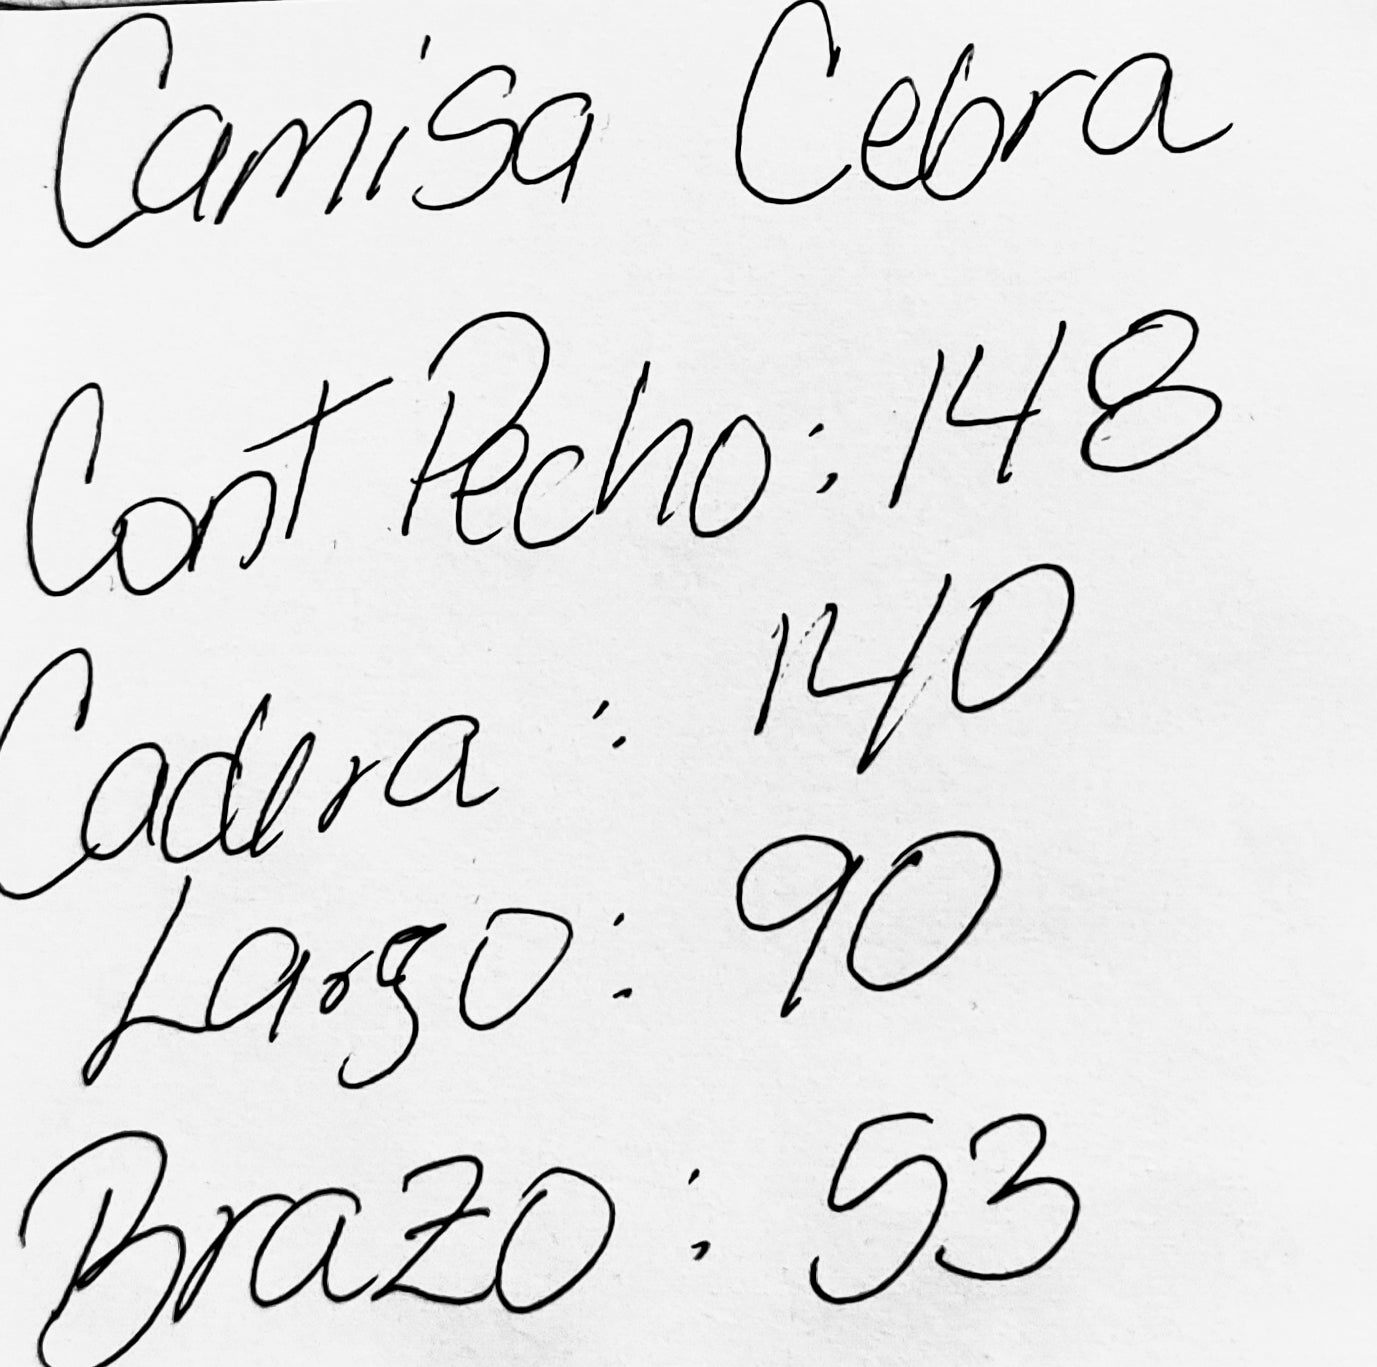 Camisa Cebra
Cont Pecho: 148
Cadera: 140
Largo: 90
Brazo: 53